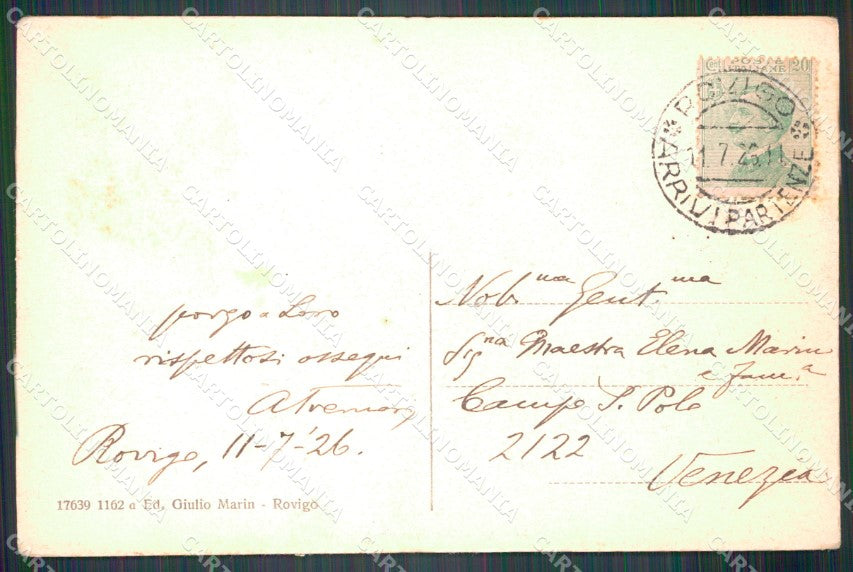 CENT. 20
ROVIGO
11.7.26.11
ARRIVI PARTENZE
Nob.ma Gent.ma
Signa Maestra Elena Marin
e fam.a
Campo S. Polo
2122
Venezia
porgo a Loro
rispettosi ossequi
Rovigo, 11-7-'26.
17639 1162 a Ed. Giulio Marin - Rovigo
CARTOLINOMANIA